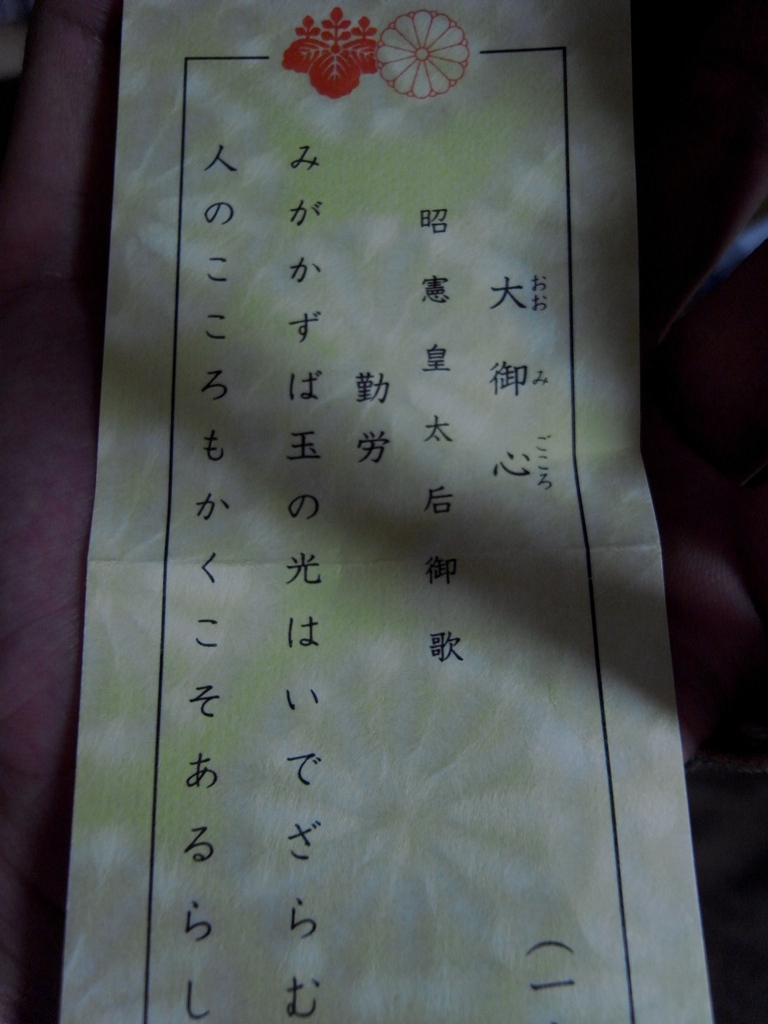 大御心
おおみごころ
昭憲皇太后御歌
勤労
みがかずば玉の光はいでざらむ
人のこころもかくこそあるらし
（一